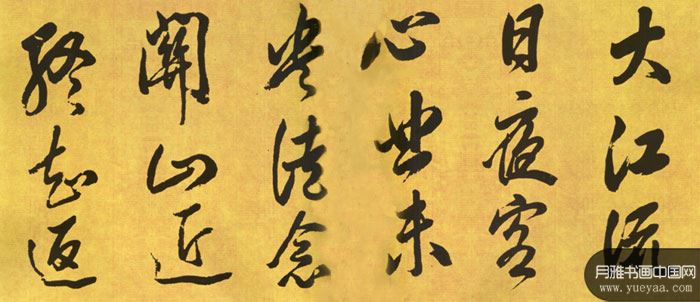 大江流
日夜客
心悲未
央徒念
關山近
終知返
月雅书画中国网
www.yueyaa.com